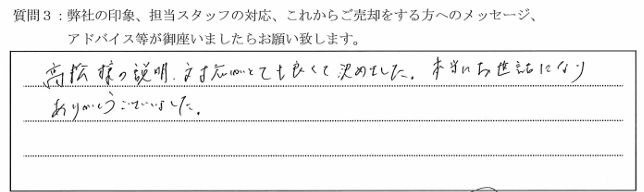 質問３：弊社の印象、担当スタッフの対応、これからご売却をする方へのメッセージ、
アドバイス等が御座いましたらお願い致します。
高松様の説明、対応がとても良くて決めました。本当にお世話になり
ありがとうございました。